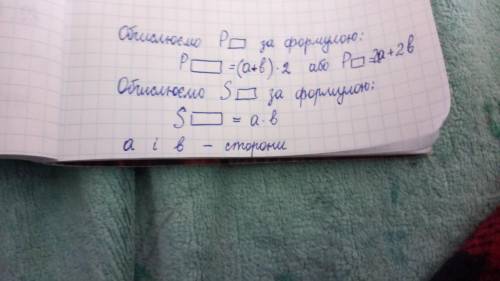 Обчислюємо P▭ за формулою:
P▭ =(a+b)·2 або P▭=2a+2b
Обчислюємо S▭ за формулою:
S▭ = a·b
a і b – сторони